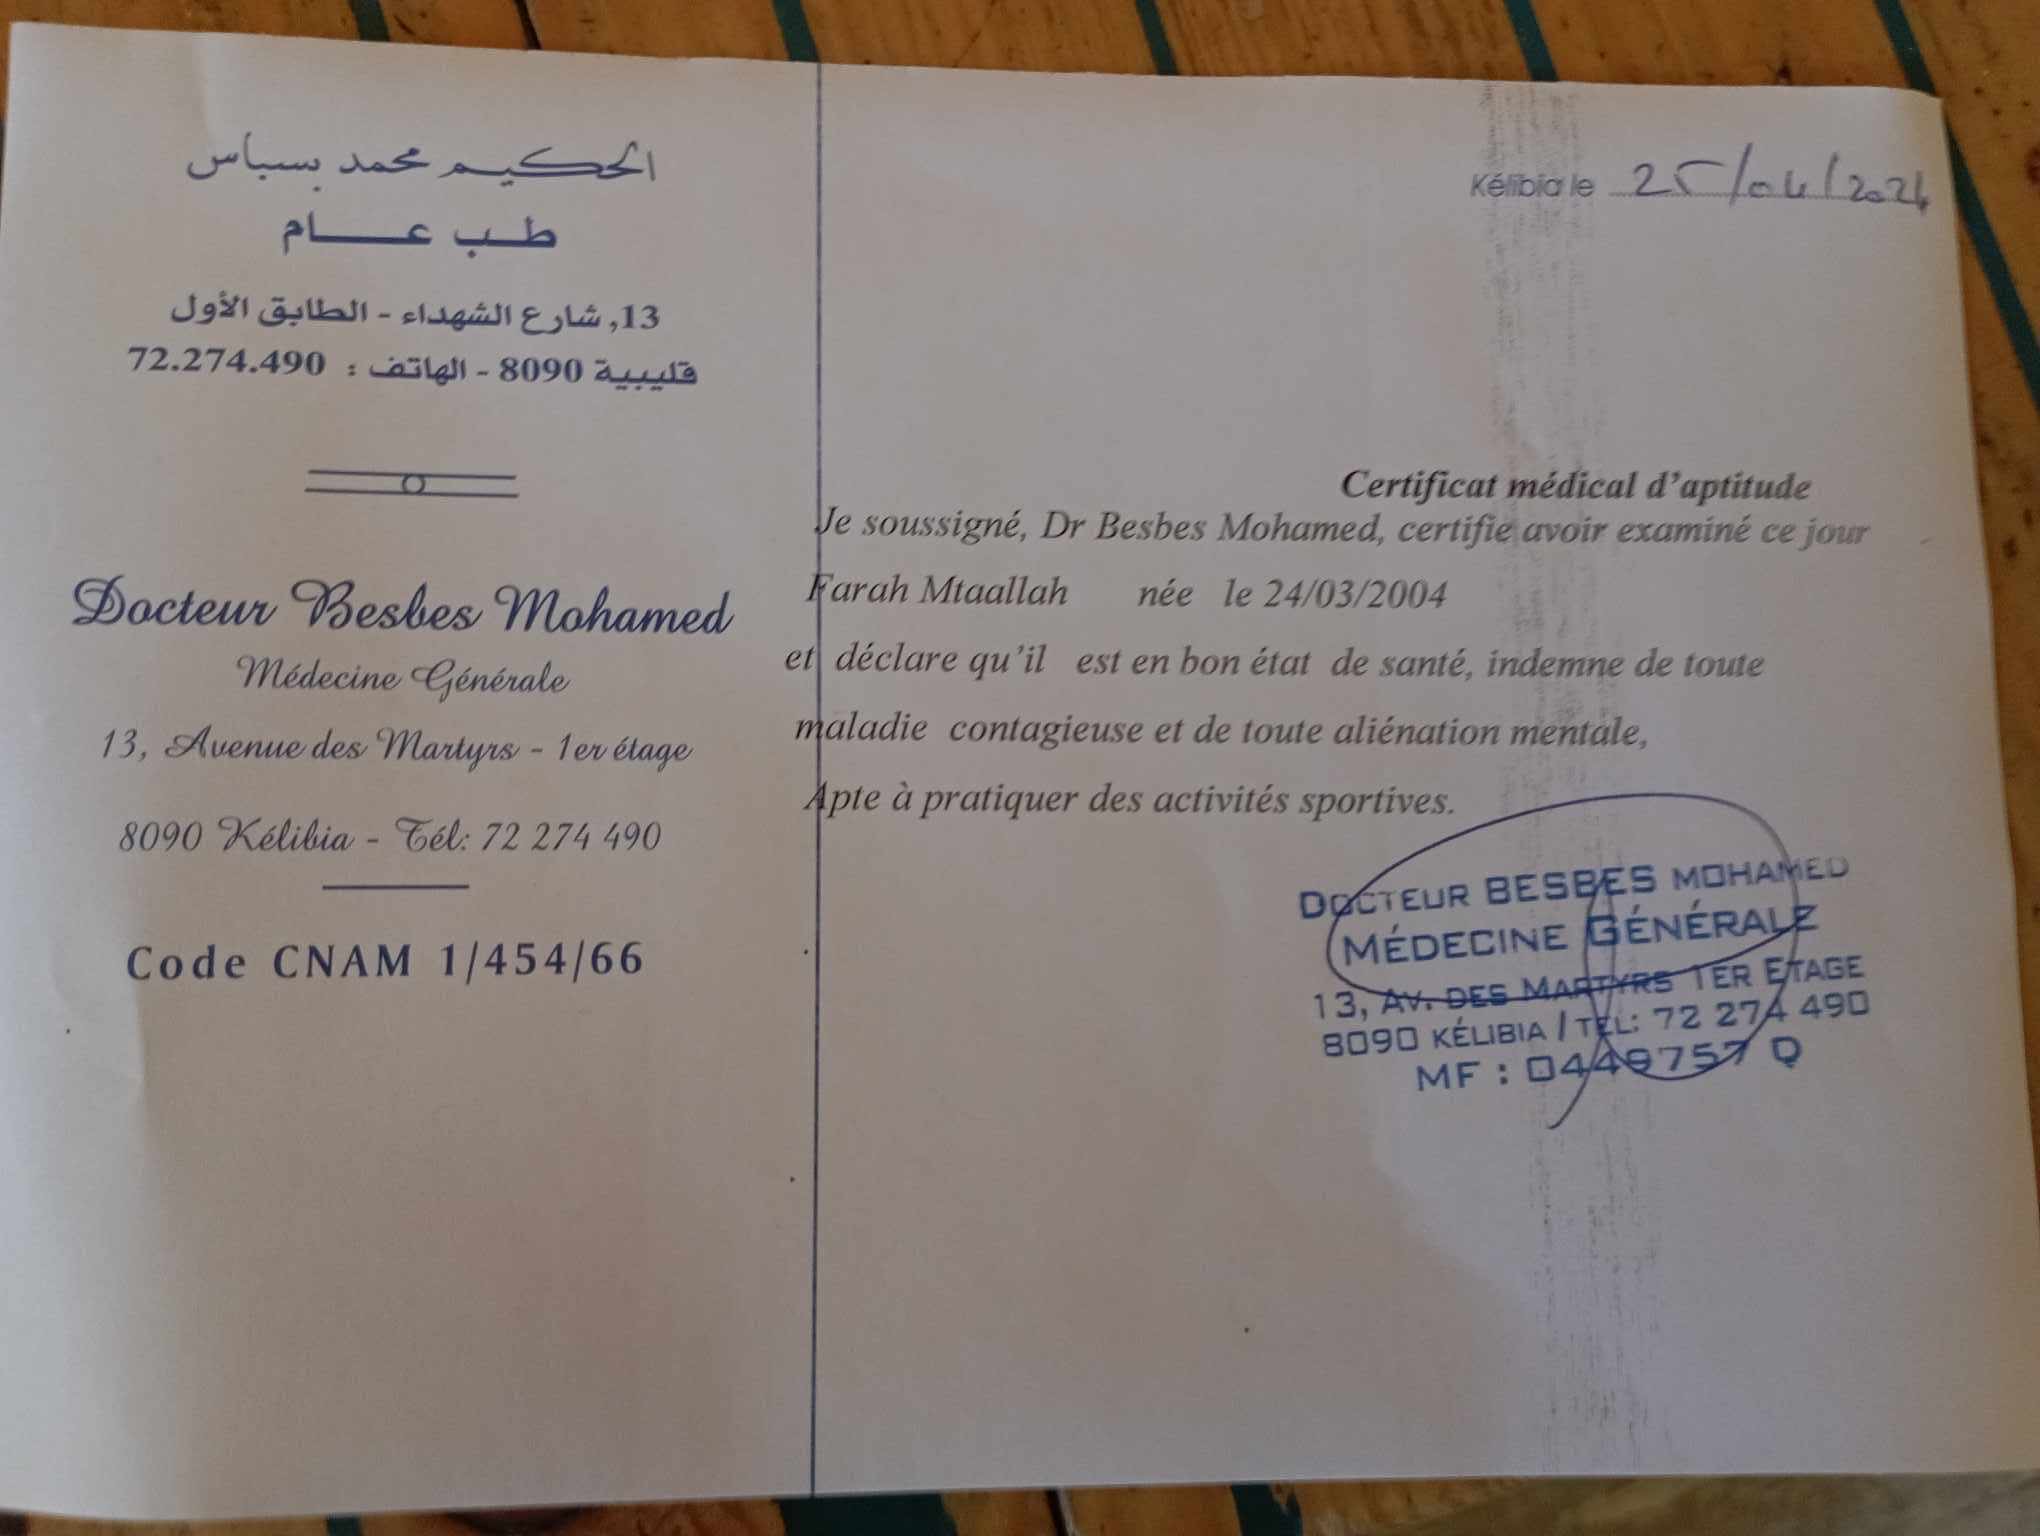 الحكيم محمد بسباس
طب عام
13, شارع الشهداء - الطابق الأول
قليبية 8090 - الهاتف : 72.274.490
Docteur Besbes Mohamed
Médecine Générale
13, Avenue des Martyrs - 1er étage
8090 Kélibia - Tél: 72 274 490
Code CNAM 1/454/66
Kélibia le 25/04/2024
Certificat médical d'aptitude
Je soussigné, Dr Besbes Mohamed, certifie avoir examiné ce jour
Farah Mtaallah née le 24/03/2004
et déclare qu'il est en bon état de santé, indemne de toute
maladie contagieuse et de toute aliénation mentale,
Apte à pratiquer des activités sportives.
DOCTEUR BESBES MOHAMED
MÉDECINE GÉNÉRALE
13, AV. DES MARTYRS 1ER ETAGE
8090 KÉLIBIA / TEL: 72 274 490
MF : 0449757 Q